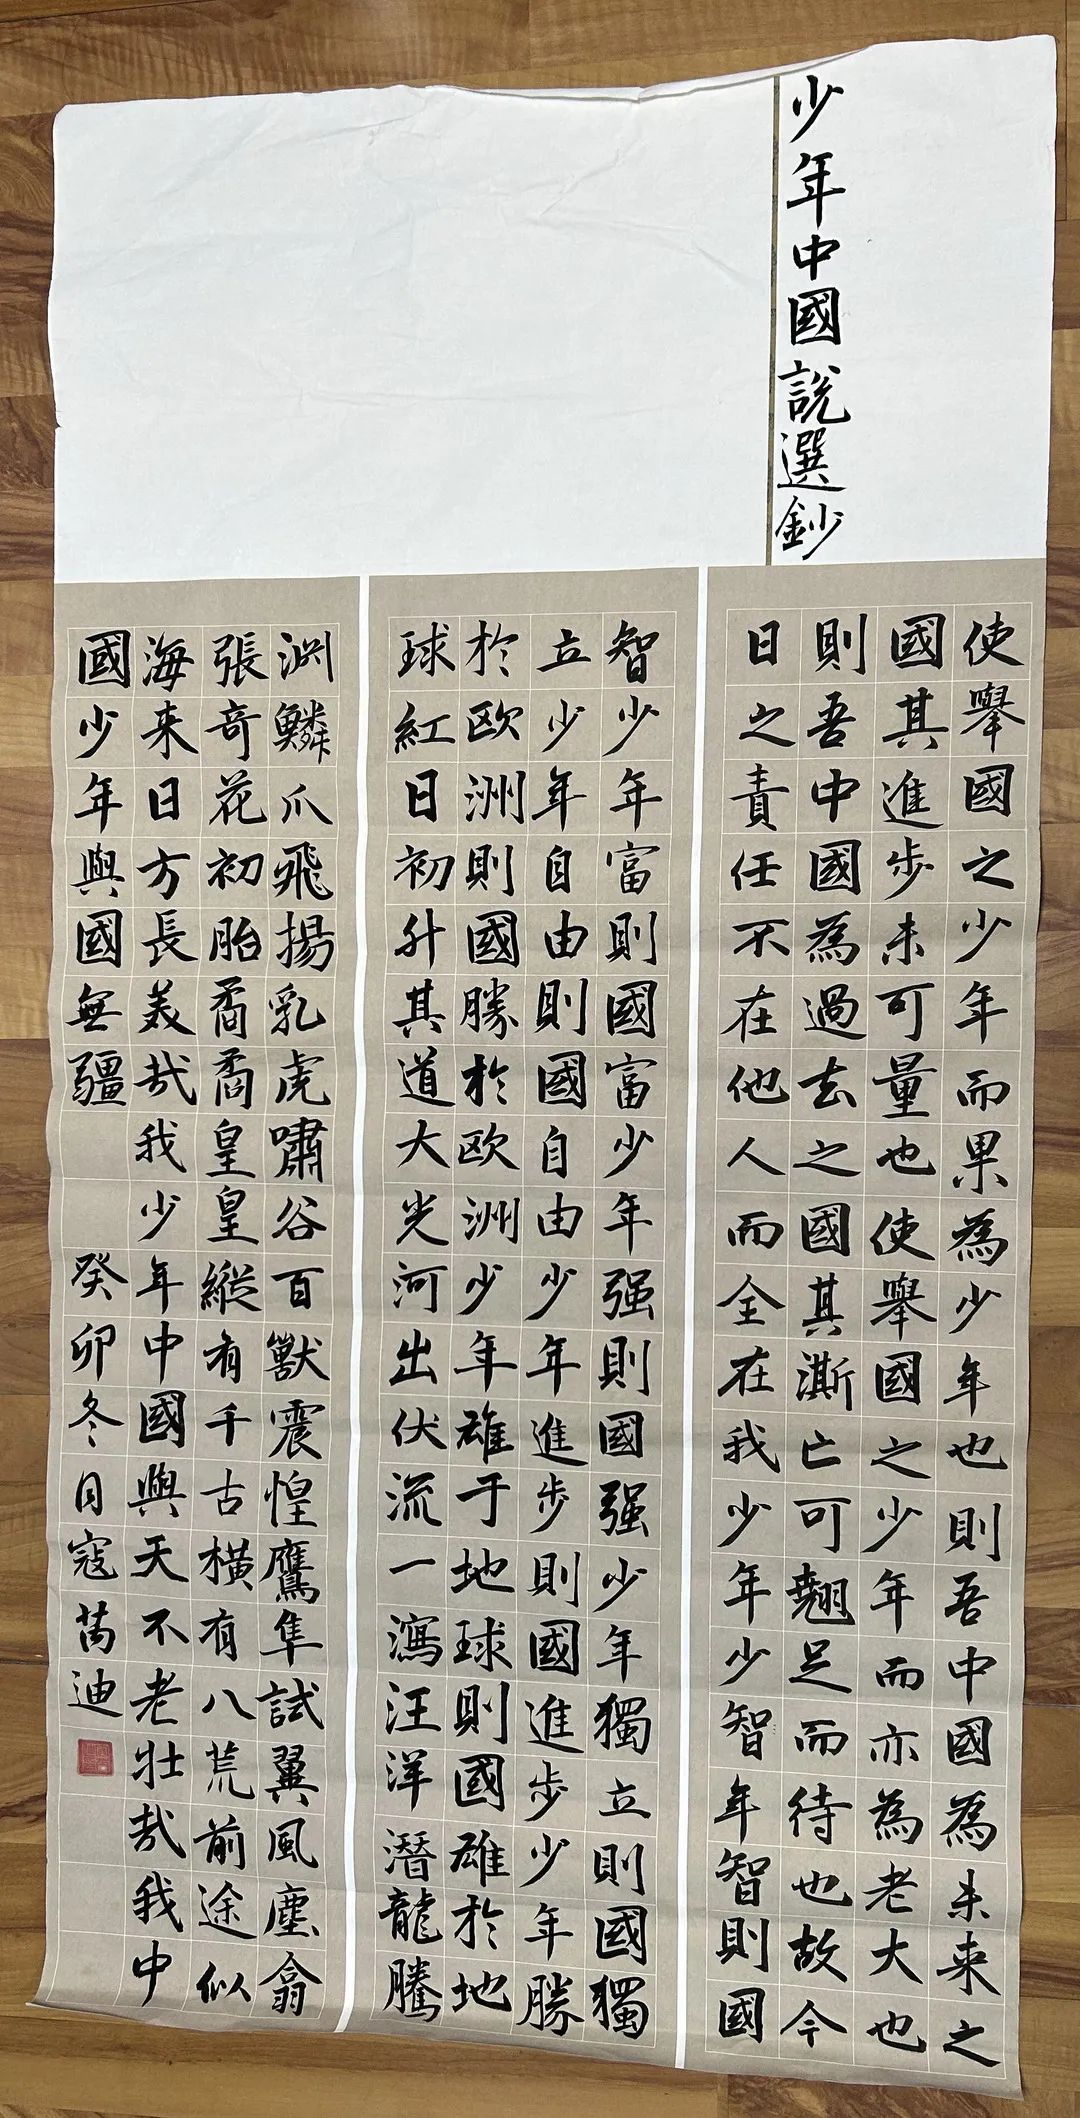 少年中國說選鈔
使舉國之少年而果為少年也則吾中國為未来之
國其進步未可量也使舉國之少年而亦為老大也
則吾中國為過去之國其澌亡可翹足而待也故今
日之責任不在他人而全在我少年少智年智則國
智少年富則國富少年强則國强少年獨立則國獨
立少年自由則國自由少年進步則國進步少年勝
於欧洲則國勝於欧洲少年雄于地球則國雄於地
球紅日初升其道大光河出伏流一瀉汪洋潛龍騰
渊鱗爪飛揚乳虎嘯谷百獸震惶鷹隼試翼風塵翕
張奇花初胎矞矞皇皇縱有千古横有八荒前途似
海来日方長美哉我少年中國與天不老壯哉我中
國少年與國無疆 癸卯冬月寇苪迪